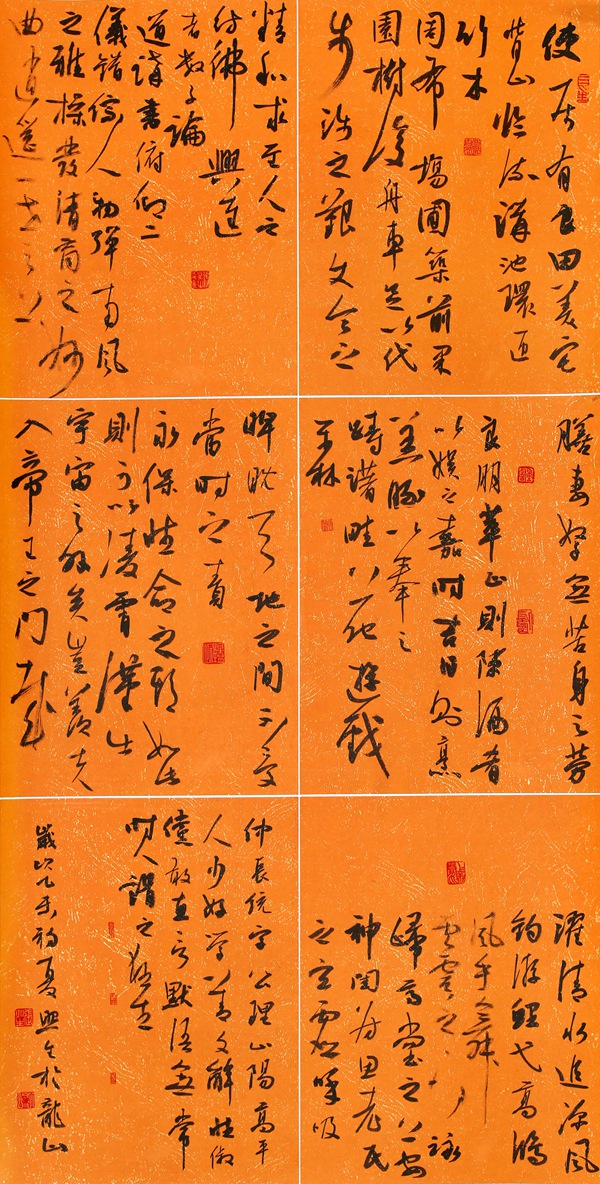 使居有良田美宅
背山臨流溝池環匝
竹木
周布場圃築前果
園樹後舟車足以代
步涉之艱
膳妻孥無苦身之勞
良朋萃止則陳酒肴
以娛之嘉時吉日則烹
羔豚以奉之
躊躇畦苑遊戲
平林
濯清水追涼風
釣游鯉弋高鴻
風乎舞
雩之下詠
歸高堂之上安
神閨房思老氏
之玄虛呼吸
精和求至人之
彷彿與達
者數子論
道講書俯仰二
儀錯綜人物彈南風
之雅操發清商之妙
曲逍遙一世之上
睥睨天地之間不受
當時之責
永保性命之期如此
則可以凌霄漢出
宇宙之外矣豈羨夫
入帝王之門哉
仲長統字公理山陽高平
人少好學善文辭性俶
儻敢直言默語無常
時人謂之狂生
歲次乙未初夏於龍山